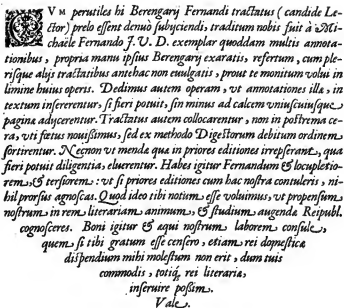 CVM perutiles hi Berengarij Fernandi tractatus (candide Le-
ctor) prelo essent denuò subijciendi, traditum nobis fuit à Mi-
chaële Fernando J. V. D. exemplar quoddam multis annota-
tionibus, propria manu ipsius Berengarij exaratis, refertum, cum ple-
risque alijs tractatibus antehac non euulgatis, prout te monitum volui in
limine huius operis. Dedimus autem operam, vt annotationes illæ, in
textum insererentur, si fieri potuit, sin minus ad calcem vniuscuiusque
paginæ adijcerentur. Tractatus autem collocarentur, non in postrema ce-
ra, vti fœtus nouissimus, sed ex methodo Digestorum debitum ordinem
sortirentur. Necnon vt mendæ quæ in priores editiones irrepserant, qua
fieri potuit diligentia, eluerentur. Habes igitur Fernandum & locupletio-
rem, & tersiorem: vt si priores editiones cum hac nostra contuleris, ni-
hil prorsus agnoscas. Quod ideo tibi notum esse voluimus, vt propensum
nostrum in rem literariam animum, & studium augendæ Reipubl.
cognosceres. Boni igitur & æqui nostrum laborem consule,
quem si tibi gratum esse censero, etiam rei domesticæ
dispendium mihi molestum non erit, dum tuis
commodis, totiq; rei literariæ,
inseruire possim.
Vale.